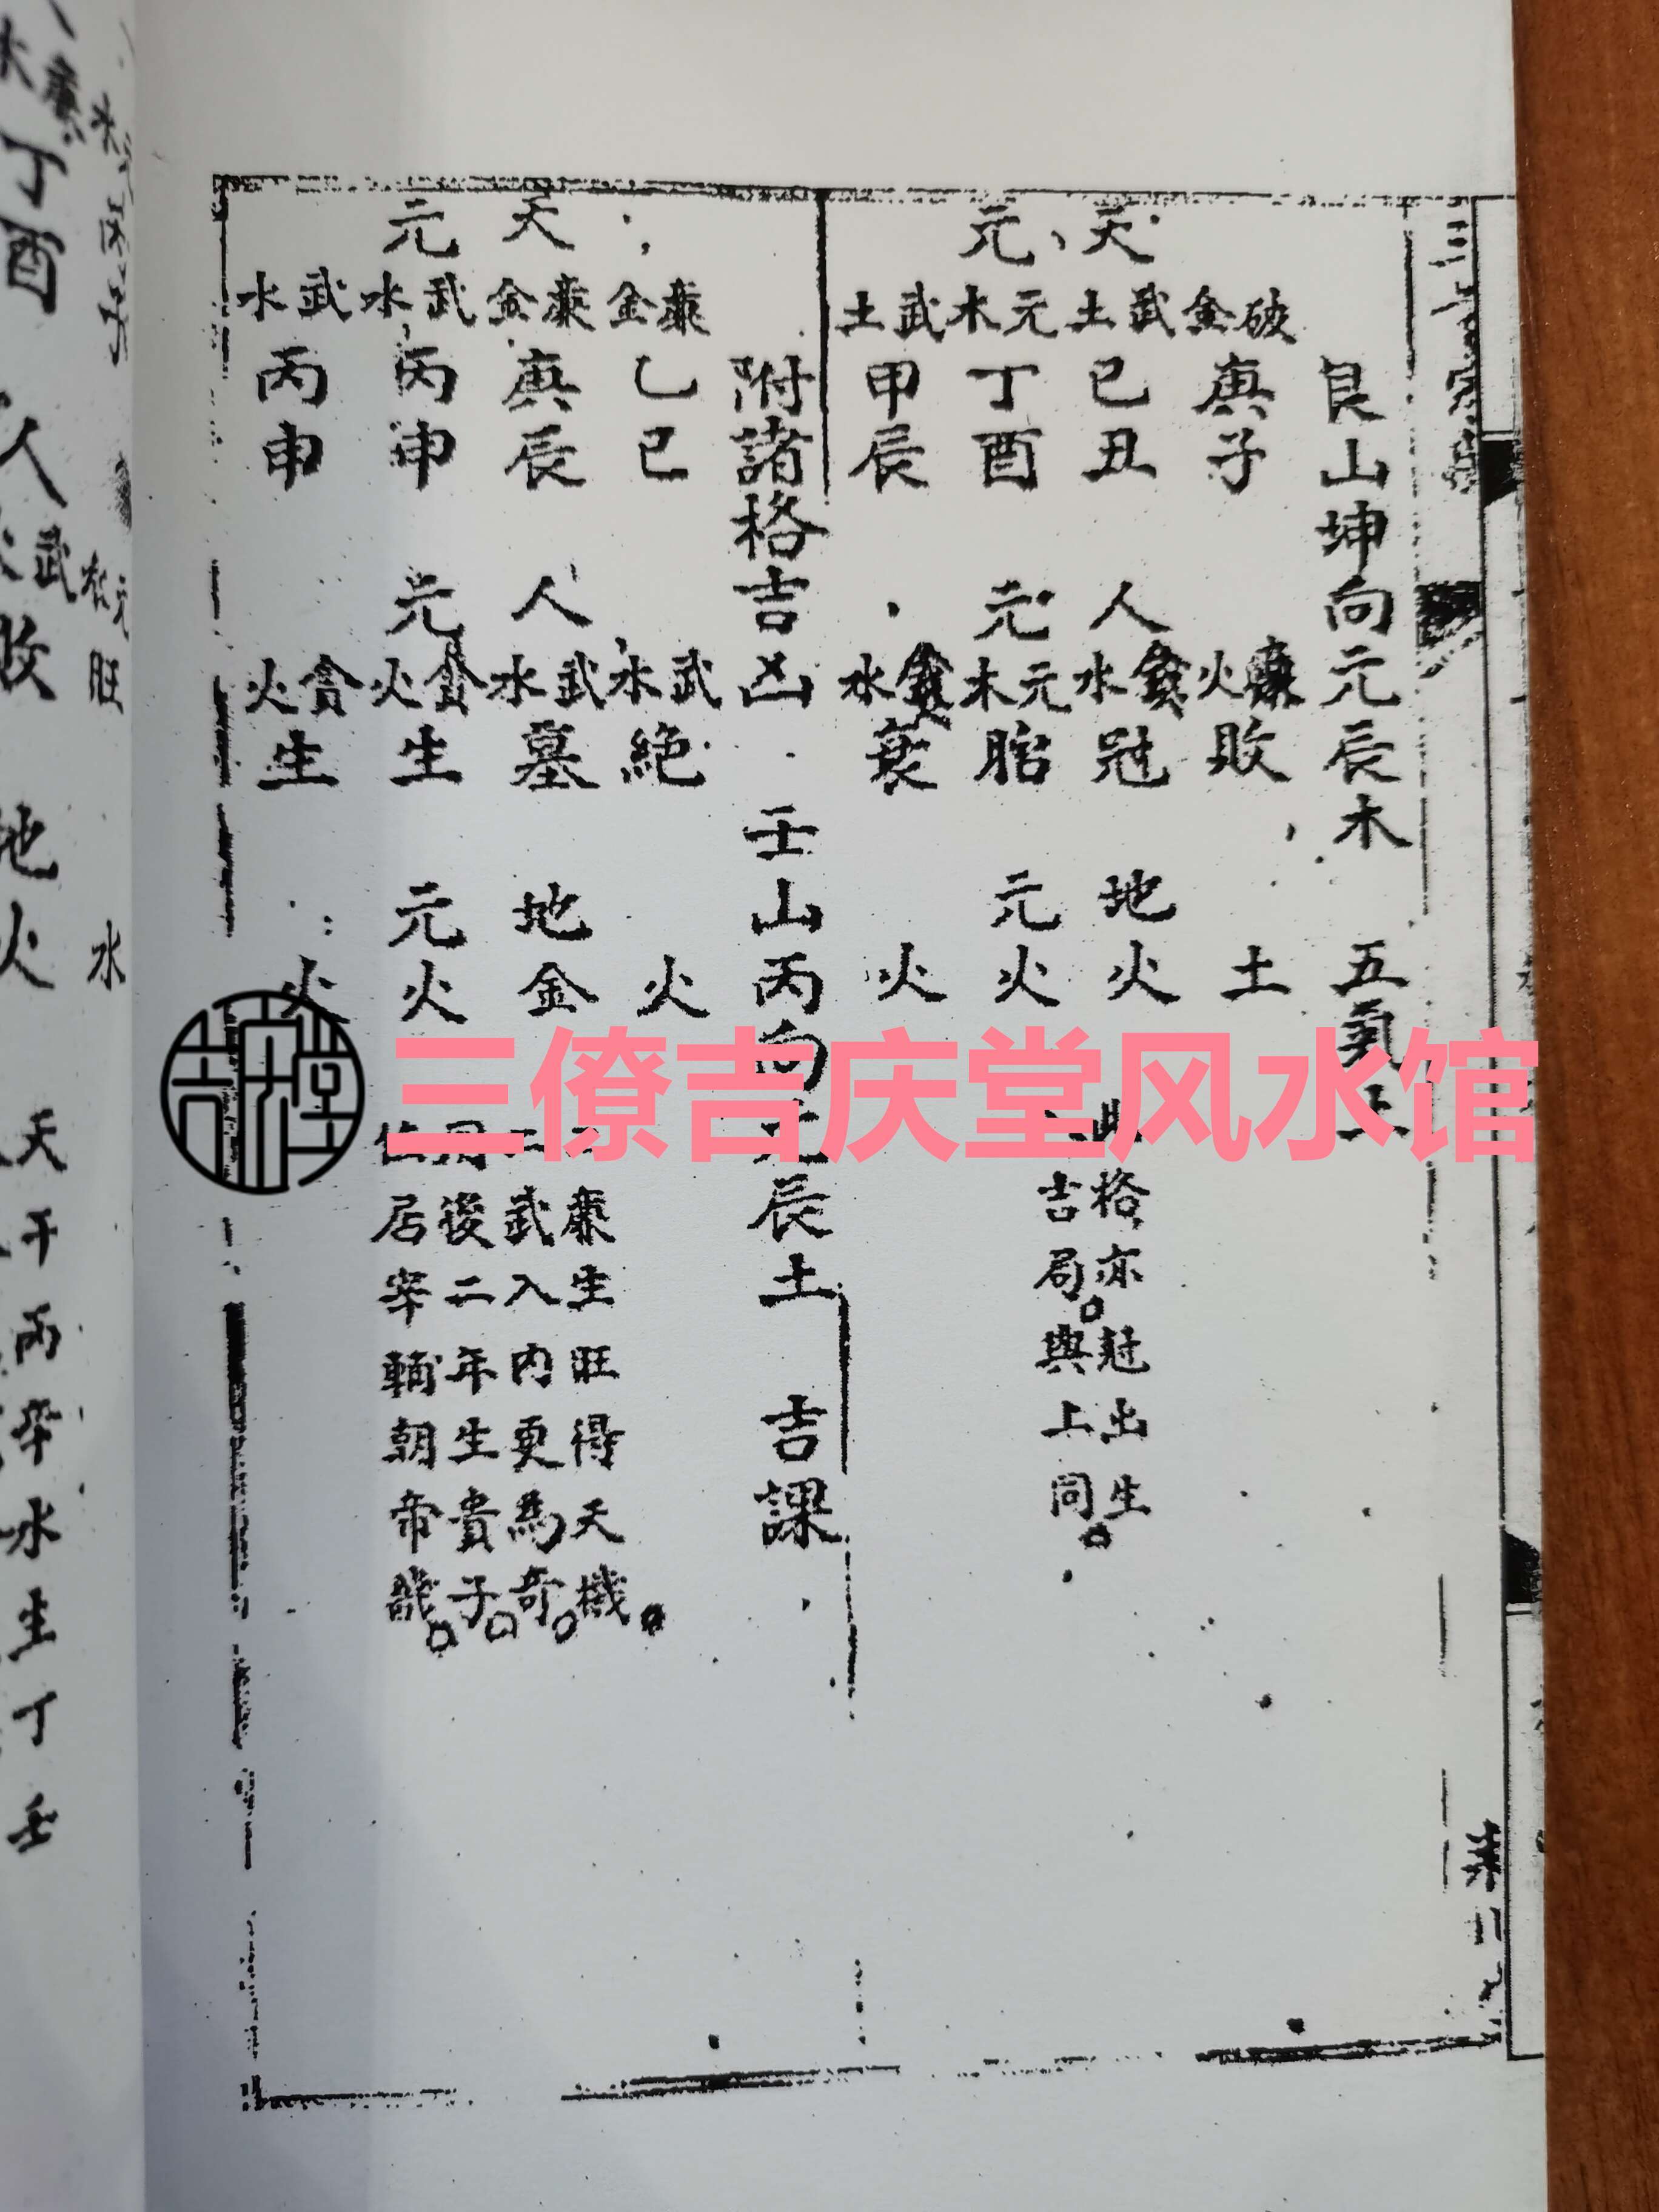 艮山坤向元辰木　五氣土
天元
破金　庚子　廉火　敗　土
武土　己丑　水　冠　火
元木　丁酉　元木　胎　火
武土　甲辰　水　衰　火
人元
地元
此格亦冠出生
吉局。與上同。
附諸格吉凶　壬山丙向元辰土　吉課
天元
廉金　乙巳　武水　絕　火
廉金　庚辰　武水　墓　金
武水　丙申　貪火　生　火
武水　丙申　貪火　生　火
人元
地元
二廉生旺得天機。
二武入內更為奇。
後二年生貴子。
位居宰輔朝帝畿。
三僚吉庆堂风水馆
丁酉
人
武
敗
地火
天干丙辛水生丁壬
元旺
水